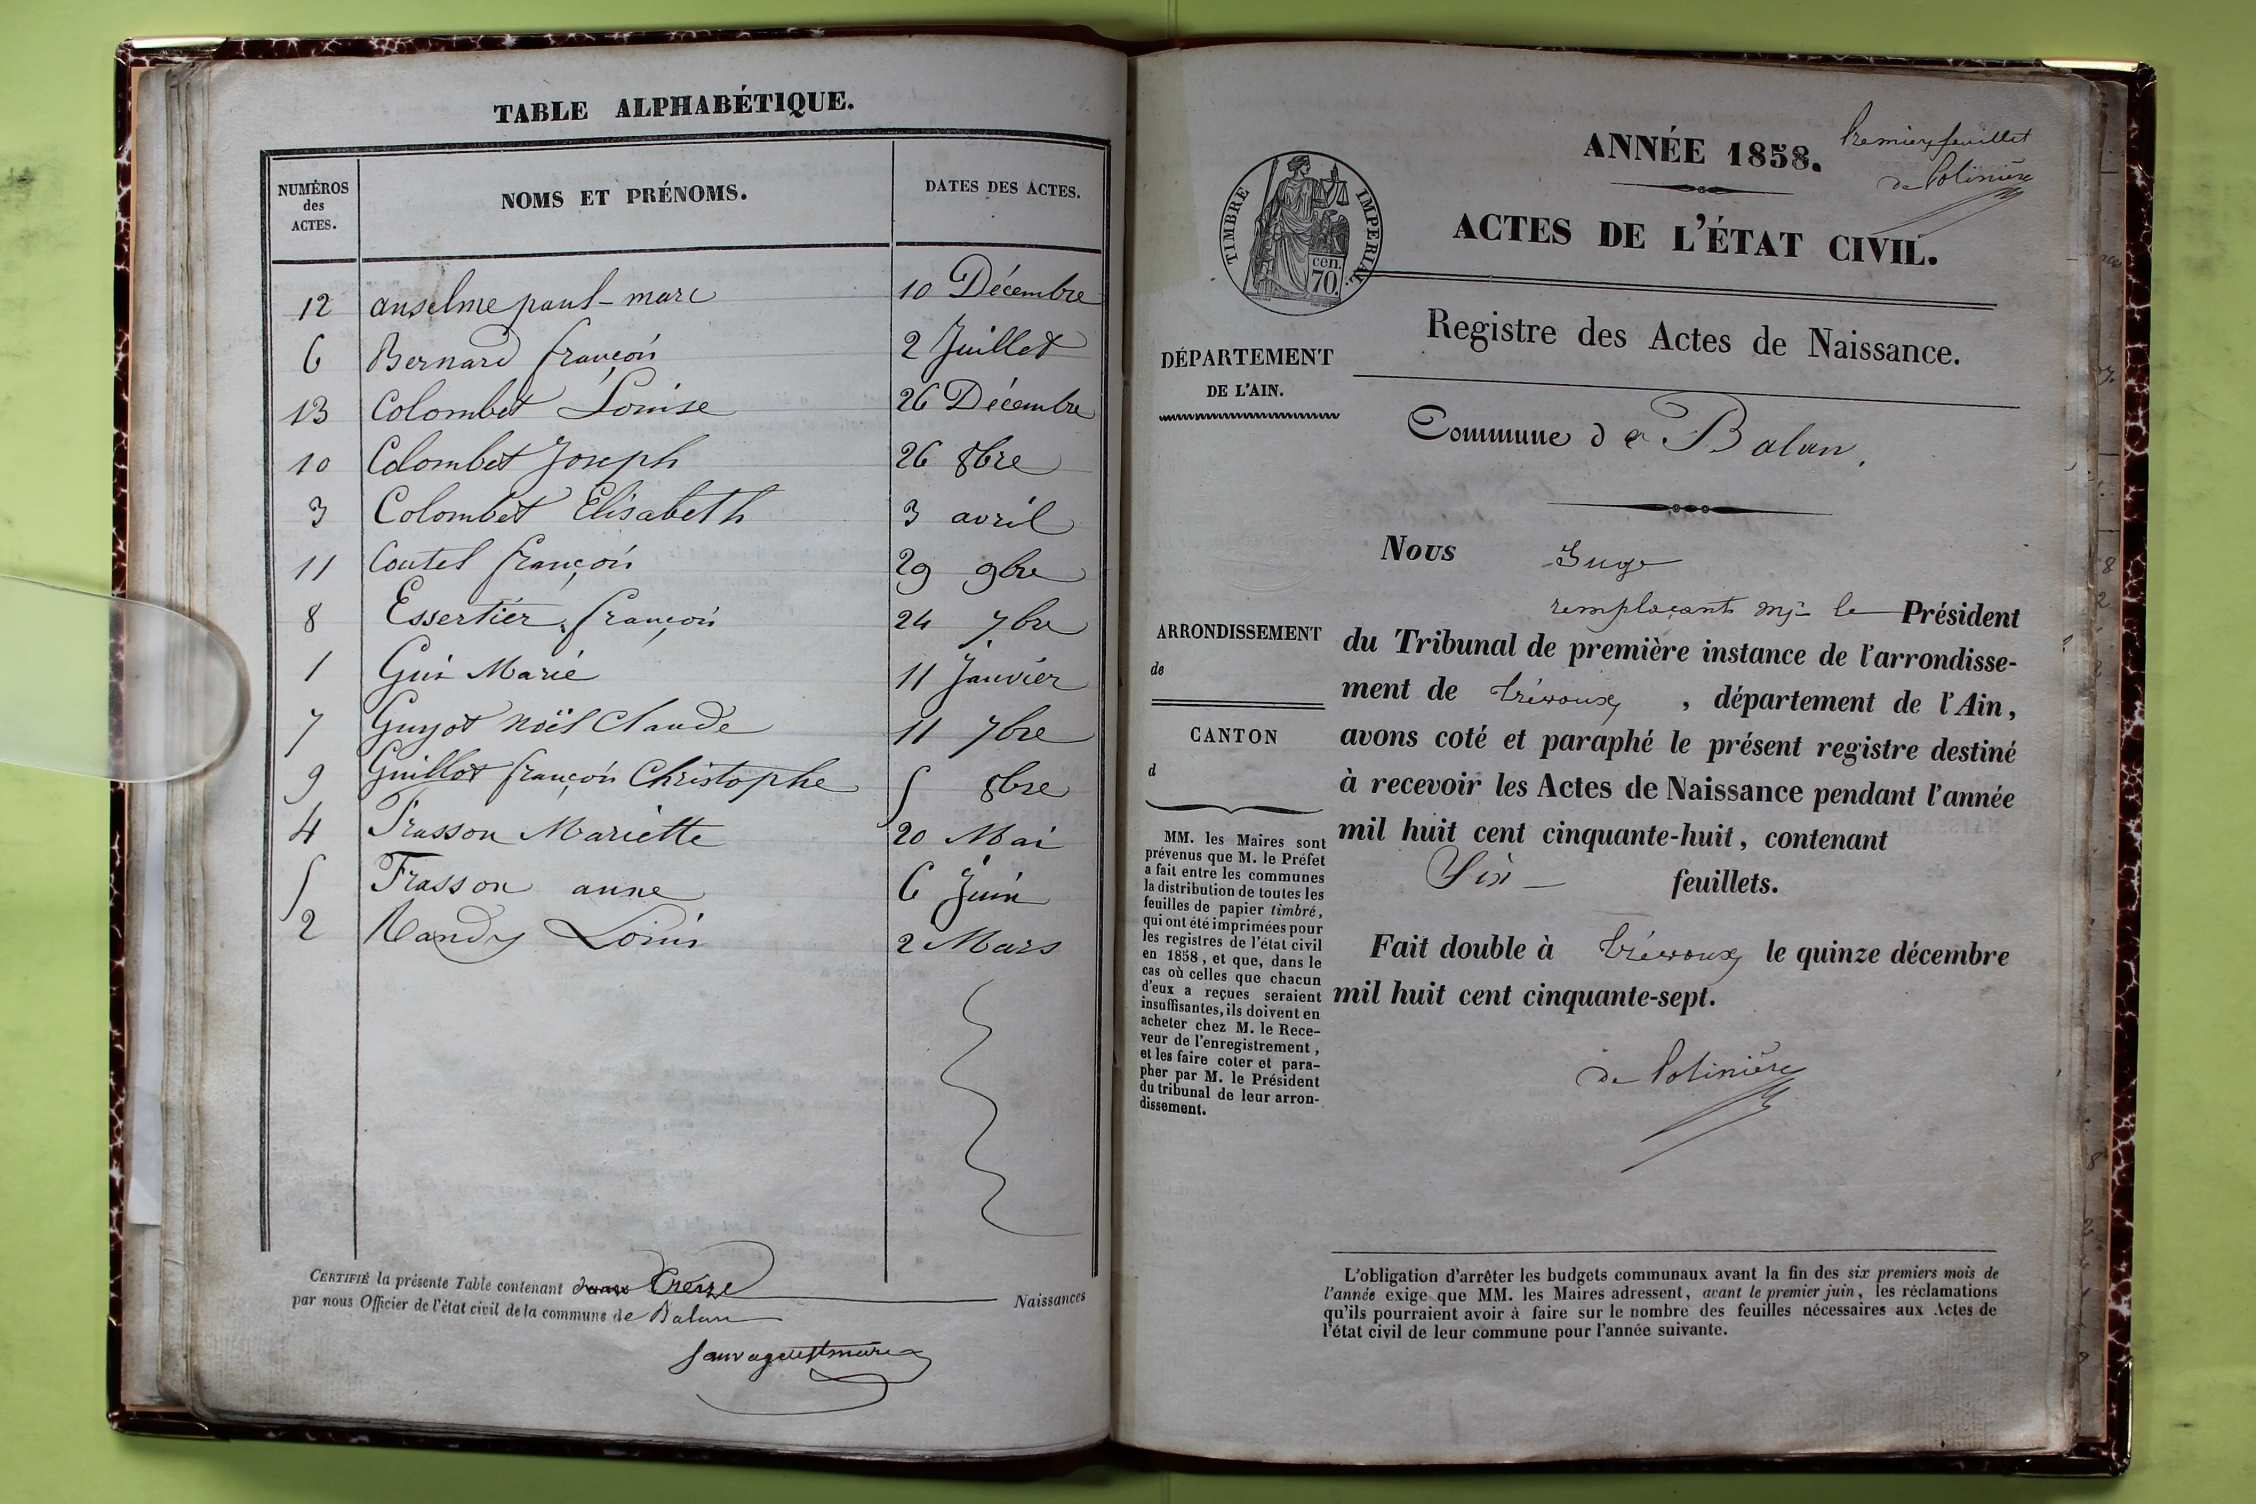 TABLE ALPHABÉTIQUE.
NUMÉROS des ACTES. NOMS ET PRÉNOMS. DATES DES ACTES.
12 anselme paul-marc 10 Décembre
6 Bernard françois 2 Juillet
13 Colombet Louise 26 Décembre
10 Colombet Joseph 26 8bre
3 Colombet Elisabeth 3 avril
11 Coutel françois 29 9bre
8 Essertier françois 24 7bre
1 Gui Marie 11 Janvier
7 Guyot noël Claude 11 7bre
9 Guillot françois Christophe 5 8bre
4 Frasson Mariette 20 Mai
5 Frasson anne 6 Juin
2 Nandy Louis 2 Mars
CERTIFIÉ la présente Table contenant Treize Naissances
par nous Officier de l'état civil de la commune de Balan
ANNÉE 1858.
Premier feuillet
de Polinière
TIMBRE IMPERIAL
cen.
70.
ACTES DE L'ÉTAT CIVIL.
Registre des Actes de Naissance.
DÉPARTEMENT
DE L'AIN.
Commune de Balan.
Nous Juge
remplaçant mr le Président
du Tribunal de première instance de l'arrondisse-
ment de trévoux, département de l'Ain,
avons coté et paraphé le présent registre destiné
à recevoir les Actes de Naissance pendant l'année
mil huit cent cinquante-huit, contenant
Six feuillets.
Fait double à trévoux le quinze décembre
mil huit cent cinquante-sept.
de Polinière
ARRONDISSEMENT
de
CANTON
d
MM. les Maires sont
prévenus que M. le Préfet
a fait entre les communes
la distribution de toutes les
feuilles de papier timbré,
qui ont été imprimées pour
les registres de l'état civil
en 1858, et que, dans le
cas où celles que chacun
d'eux a reçues seraient
insuffisantes, ils doivent en
acheter chez M. le Rece-
veur de l'enregistrement,
et les faire coter et para-
pher par M. le Président
du tribunal de leur arron-
dissement.
L'obligation d'arrêter les budgets communaux avant la fin des six premiers mois de
l'année exige que MM. les Maires adressent, avant le premier juin, les réclamations
qu'ils pourraient avoir à faire sur le nombre des feuilles nécessaires aux Actes de
l'état civil de leur commune pour l'année suivante.